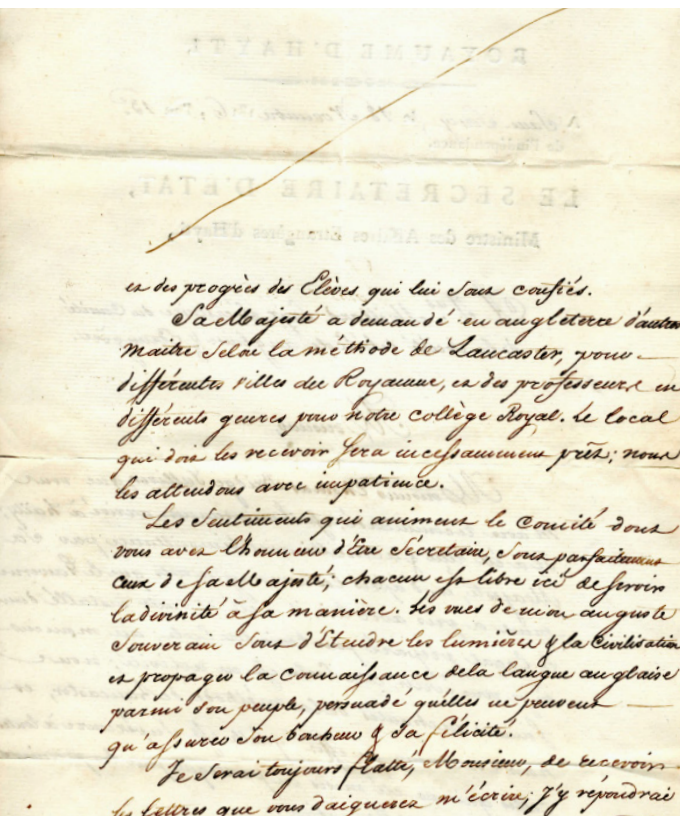 ROYAUME D'HAYTI.
de l'Indépendance.
LE SECRÉTAIRE D'ÉTAT,
Ministre des Affaires Étrangères d'Hayti,
et des progrès des Elèves qui lui sont confiés.
Sa Majesté a demandé en angleterre d'autres
maitre selon la méthode de Lancaster, pour
différentes villes du Royaume, et des professeurs en
différents genres pour notre collège Royal. Le local
qui doit les recevoir sera incessamment prêt; nous
les attendons avec impatience.
Les sentiments qui animent le comité dont
vous avez l'honneur d'Être Sécretaire, sont parfaitement
ceux de Sa Majesté; chacun est libre ici de servir
la divinité à sa manière. Les vues de mon auguste
Souverain sont d'Etendre les lumières & la Civilisation
et propager la connaissance de la langue anglaise
parmi son peuple, persuadé qu'elles ne peuvent
qu'assurer son bonheur & sa félicité.
Je serai toujours flatté, Monsieur, de recevoir
les lettres que vous daignerez m'écrire; J'y répondrai